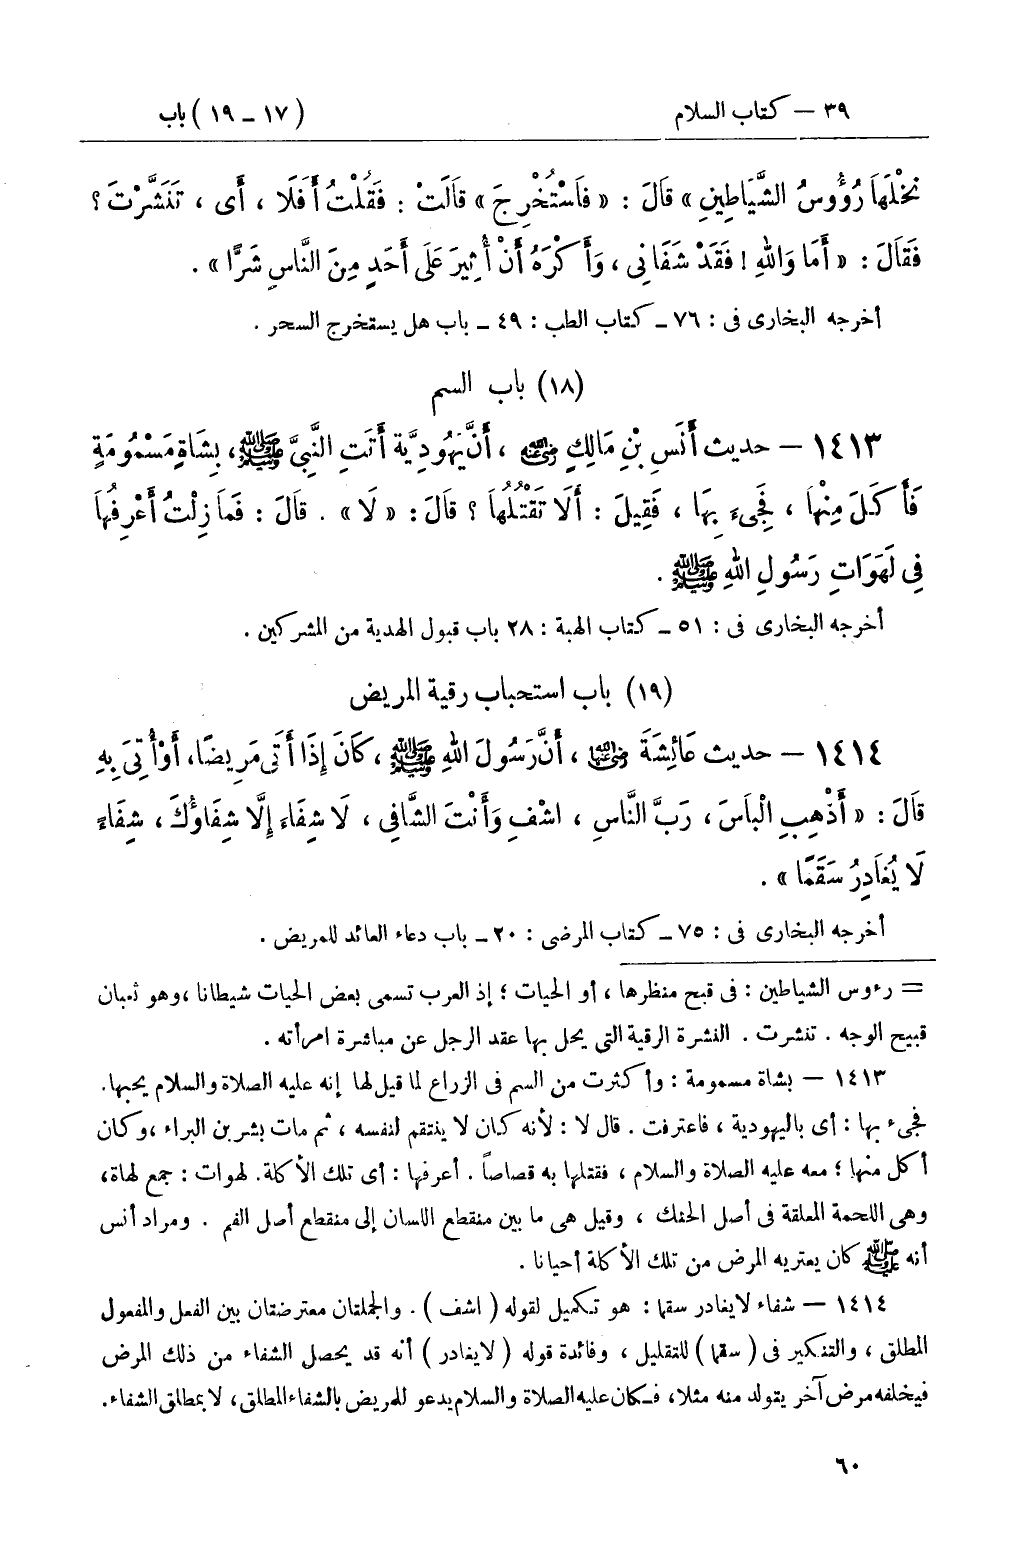 ٣٩ – كتاب السلام
(١٧ – ١٩) باب
نَخْلَهَا رُؤُوسُ الشَّيَاطِينِ » قَالَ : « فَاسْتُخْرِجَ » قَالَتْ : فَقُلْتُ أَفَلَا ، أَى ، تَنَشَّرْتَ ؟
فَقَالَ : « أَمَا وَاللهِ ! فَقَدْ شَفَانِي ، وَأَكْرَهُ أَنْ أُثِيرَ عَلَى أَحَدٍ مِنَ النَّاسِ شَرًّا » .
أخرجه البخارى فى : ٧٦ ــ كتاب الطب : ٤٩ ــ باب هل يستخرج السحر .
(١٨) باب السم
١٤١٣ – حديث أَنَسِ بْنِ مَالِكٍ رضي الله عنه ، أَنَّ يَهُودِيَّةً أَتَتِ النَّبِيَّ ﷺ ، بِشَاةٍ مَسْمُومَةٍ
فَأَكَلَ مِنْهَا ، فَجِىءَ بِهَا ، فَقِيلَ : أَلَا تَقْتُلُهَا ؟ قَالَ : « لَا » . قَالَ : فَمَا زِلْتُ أَعْرِفُهَا
فِي لَهَوَاتِ رَسُولِ اللهِ ﷺ .
أخرجه البخارى فى : ٥١ ــ كتاب الهبة : ٢٨ باب قبول الهدية من المشركين .
(١٩) باب استحباب رقية المريض
١٤١٤ – حديث عَائِشَةَ رضي الله عنها ، أَنَّ رَسُولَ اللهِ ﷺ ، كَانَ إِذَا أَتَى مَرِيضًا ، أَوْ أُتِيَ بِهِ
قَالَ : « أَذْهِبِ الْبَاسَ ، رَبَّ النَّاسِ ، اشْفِ وَأَنْتَ الشَّافِي ، لَا شِفَاءَ إِلَّا شِفَاؤُكَ ، شِفَاءً
لَا يُغَادِرُ سَقَمًا » .
أخرجه البخارى فى : ٧٥ ــ كتاب المرضى : ٢٠ ــ باب دعاء العائد للمريض .
= رءوس الشياطين : فى قبح منظرها ، أو الحيات ؛ إذ العرب تسمى بعض الحيات شيطانا ، وهو ثعبان
قبيح الوجه . تنشرت . النشرة الرقية التى يحل بها عقد الرجل عن مباشرة امرأته .
١٤١٣ – بشاة مسمومة : وأكثرت من السم فى الزراع لما قيل لها إنه عليه الصلاة والسلام يحبها .
فجىء بها : أى باليهودية ، فاعترفت . قال لا : لأنه كان لا ينتقم لنفسه ، ثم مات بشر بن البراء ، وكان
أكل منها ؛ معه عليه الصلاة والسلام ، فقتلها به قصاصاً . أعرفها : أى تلك الأكلة . لهوات : جمع لهاة ،
وهى اللحمة المعلقة فى أصل الحنك ، وقيل هى ما بين منقطع اللسان إلى منقطع أصل الفم . ومراد أنس
أنه ﷺ كان يعتريه المرض من تلك الأكلة أحيانا .
١٤١٤ – شفاء لا يغادر سقما : هو تكميل لقوله ( اشف ) . والجملتان معترضتان بين الفعل والمفعول
المطلق ، والتنكير فى ( سقما ) للتقليل ، وفائدة قوله ( لا يغادر ) أنه قد يحصل الشفاء من ذلك المرض
فيخلفه مرض آخر يتولد منه مثلا ، فكان عليه الصلاة والسلام يدعو للمريض بالشفاء المطلق ، لا بمطلق الشفاء .
٦٠